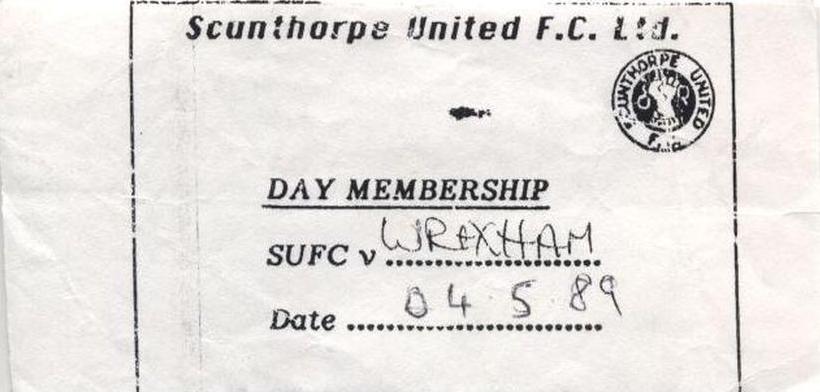 Scunthorpe United F.C. Ltd.
SCUNTHORPE UNITED
DAY MEMBERSHIP
SUFC v WREXHAM
Date 04.5.89